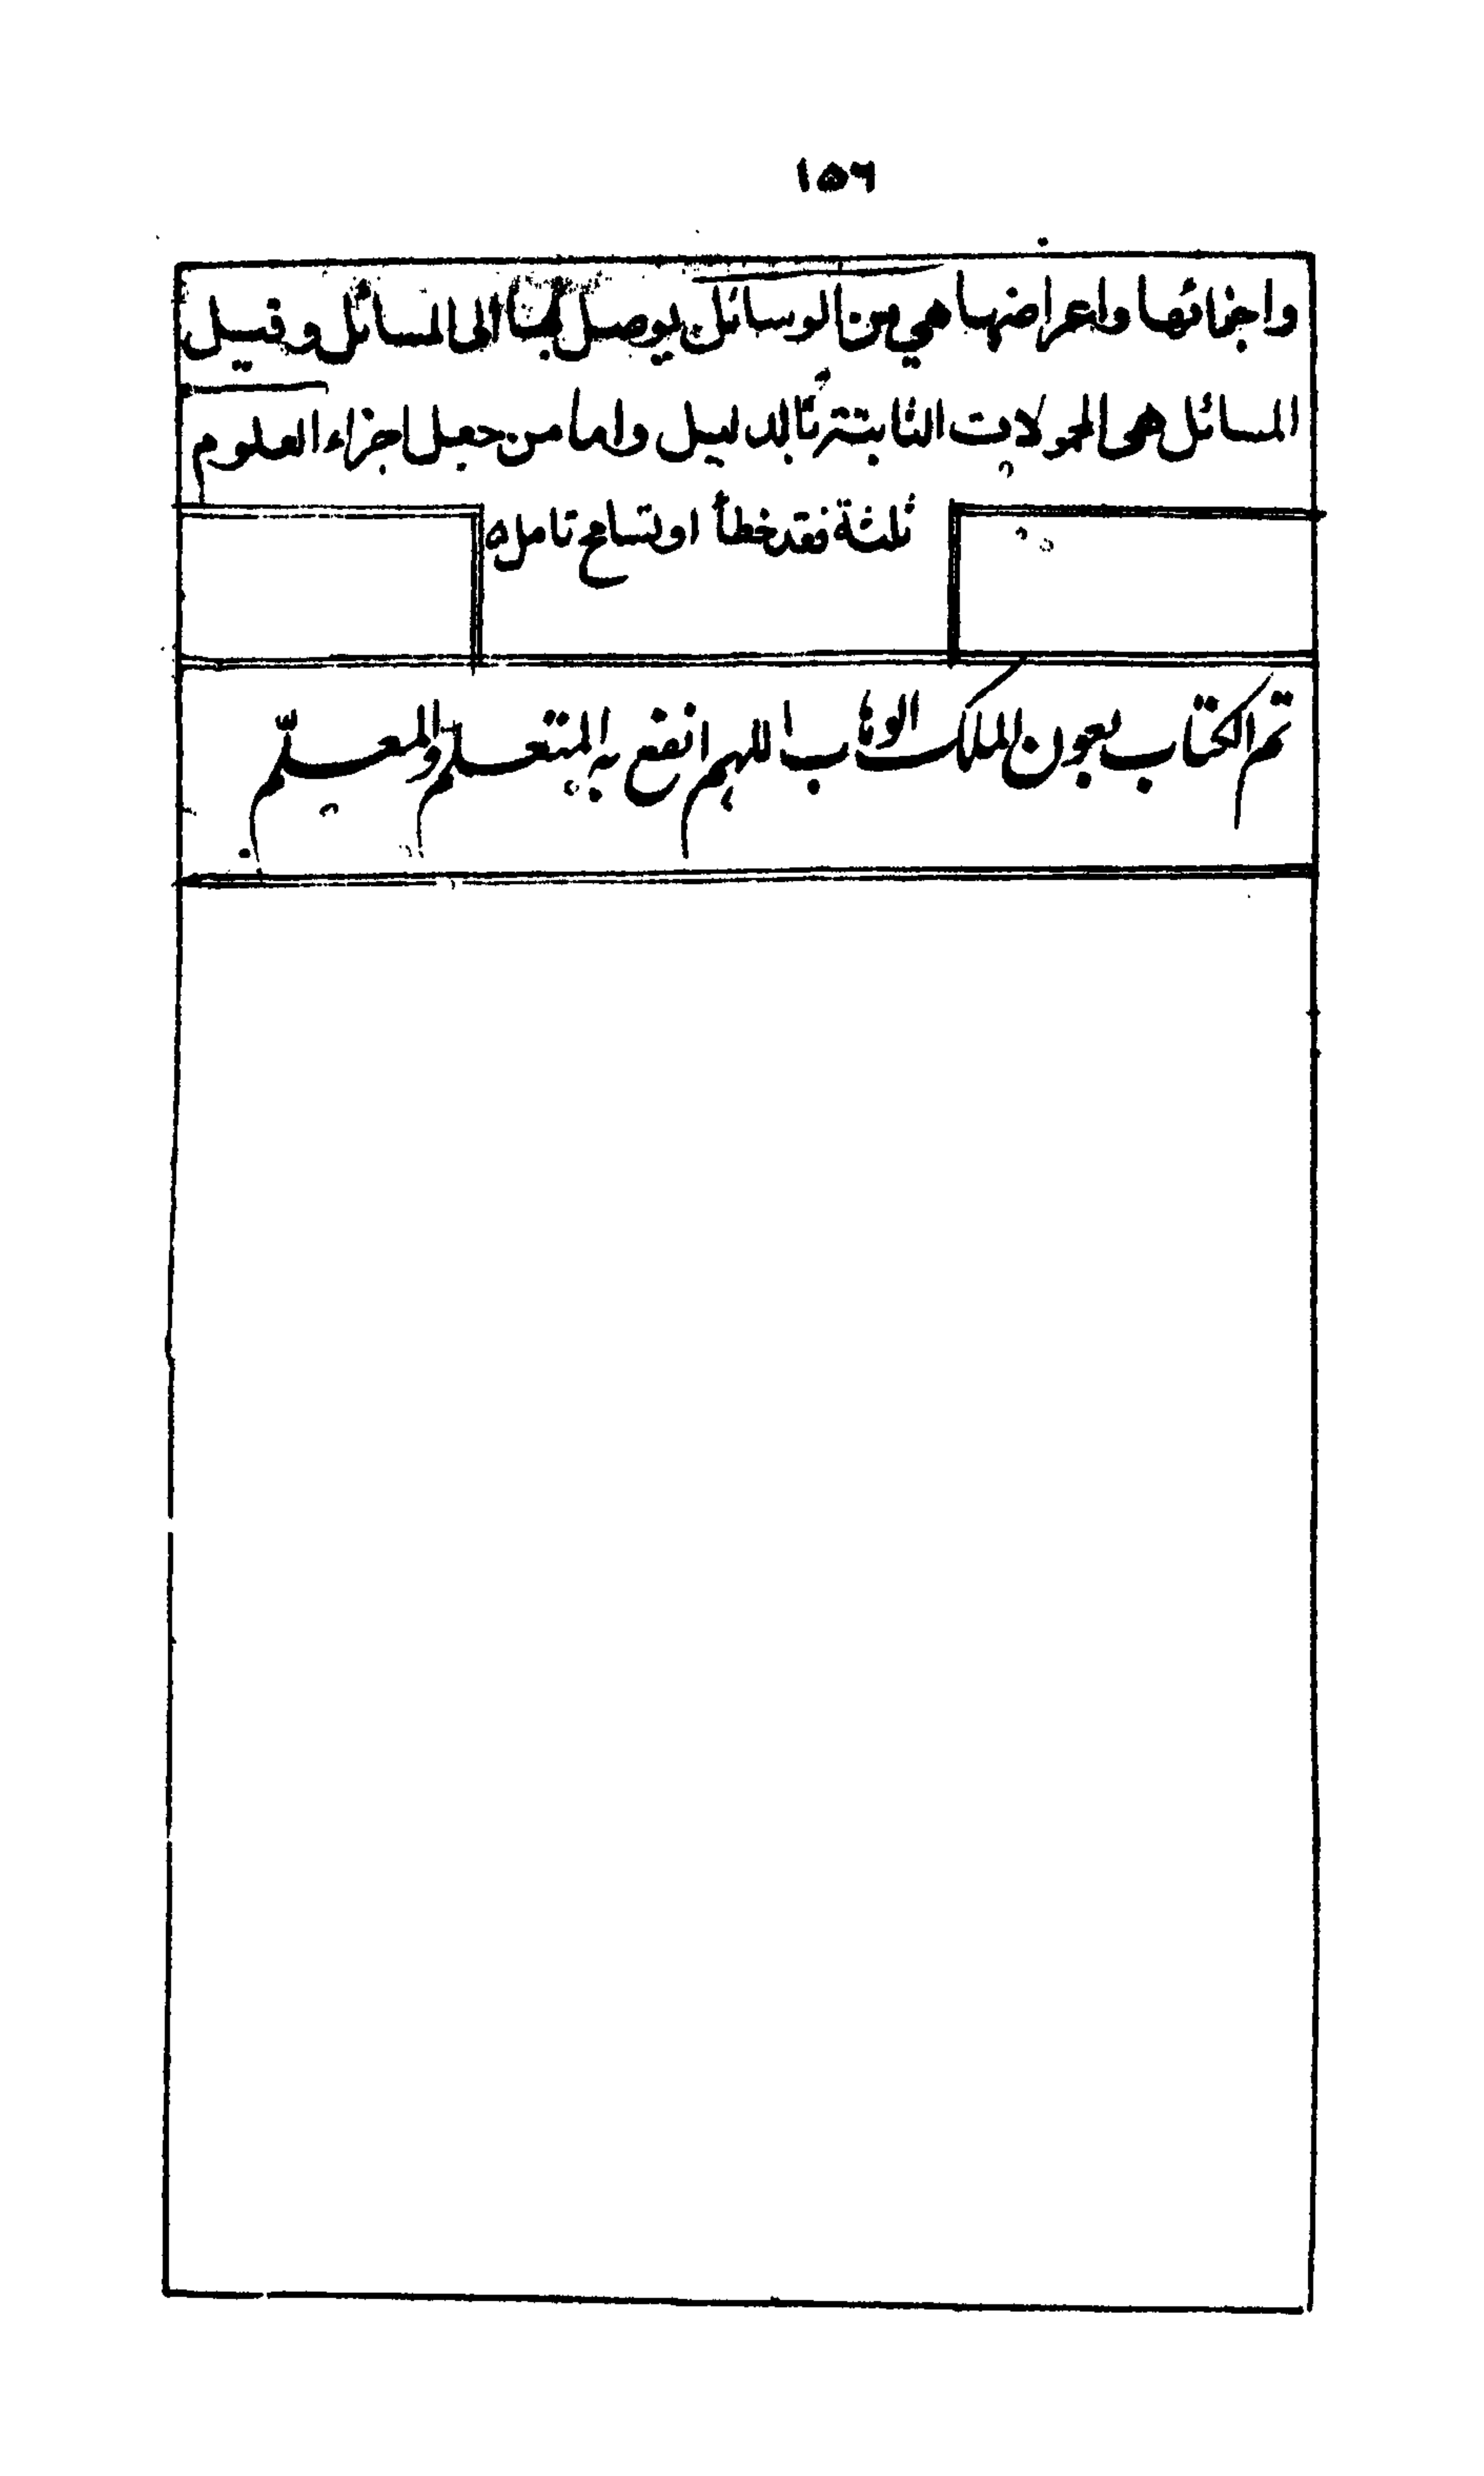 ١٥٦
واجزائها واعراضها هي من الوسائل يوصل بها الى المسائل وقيل
المسائل هى المحمولات الثابتة بالدليل واما من جعل اجزاء العلوم
ثلثة فقد خطأ او تسامح تامل ٥
تم الكتاب بعون الملك الوهاب اللهم انفع به المتعلم والمعلّم